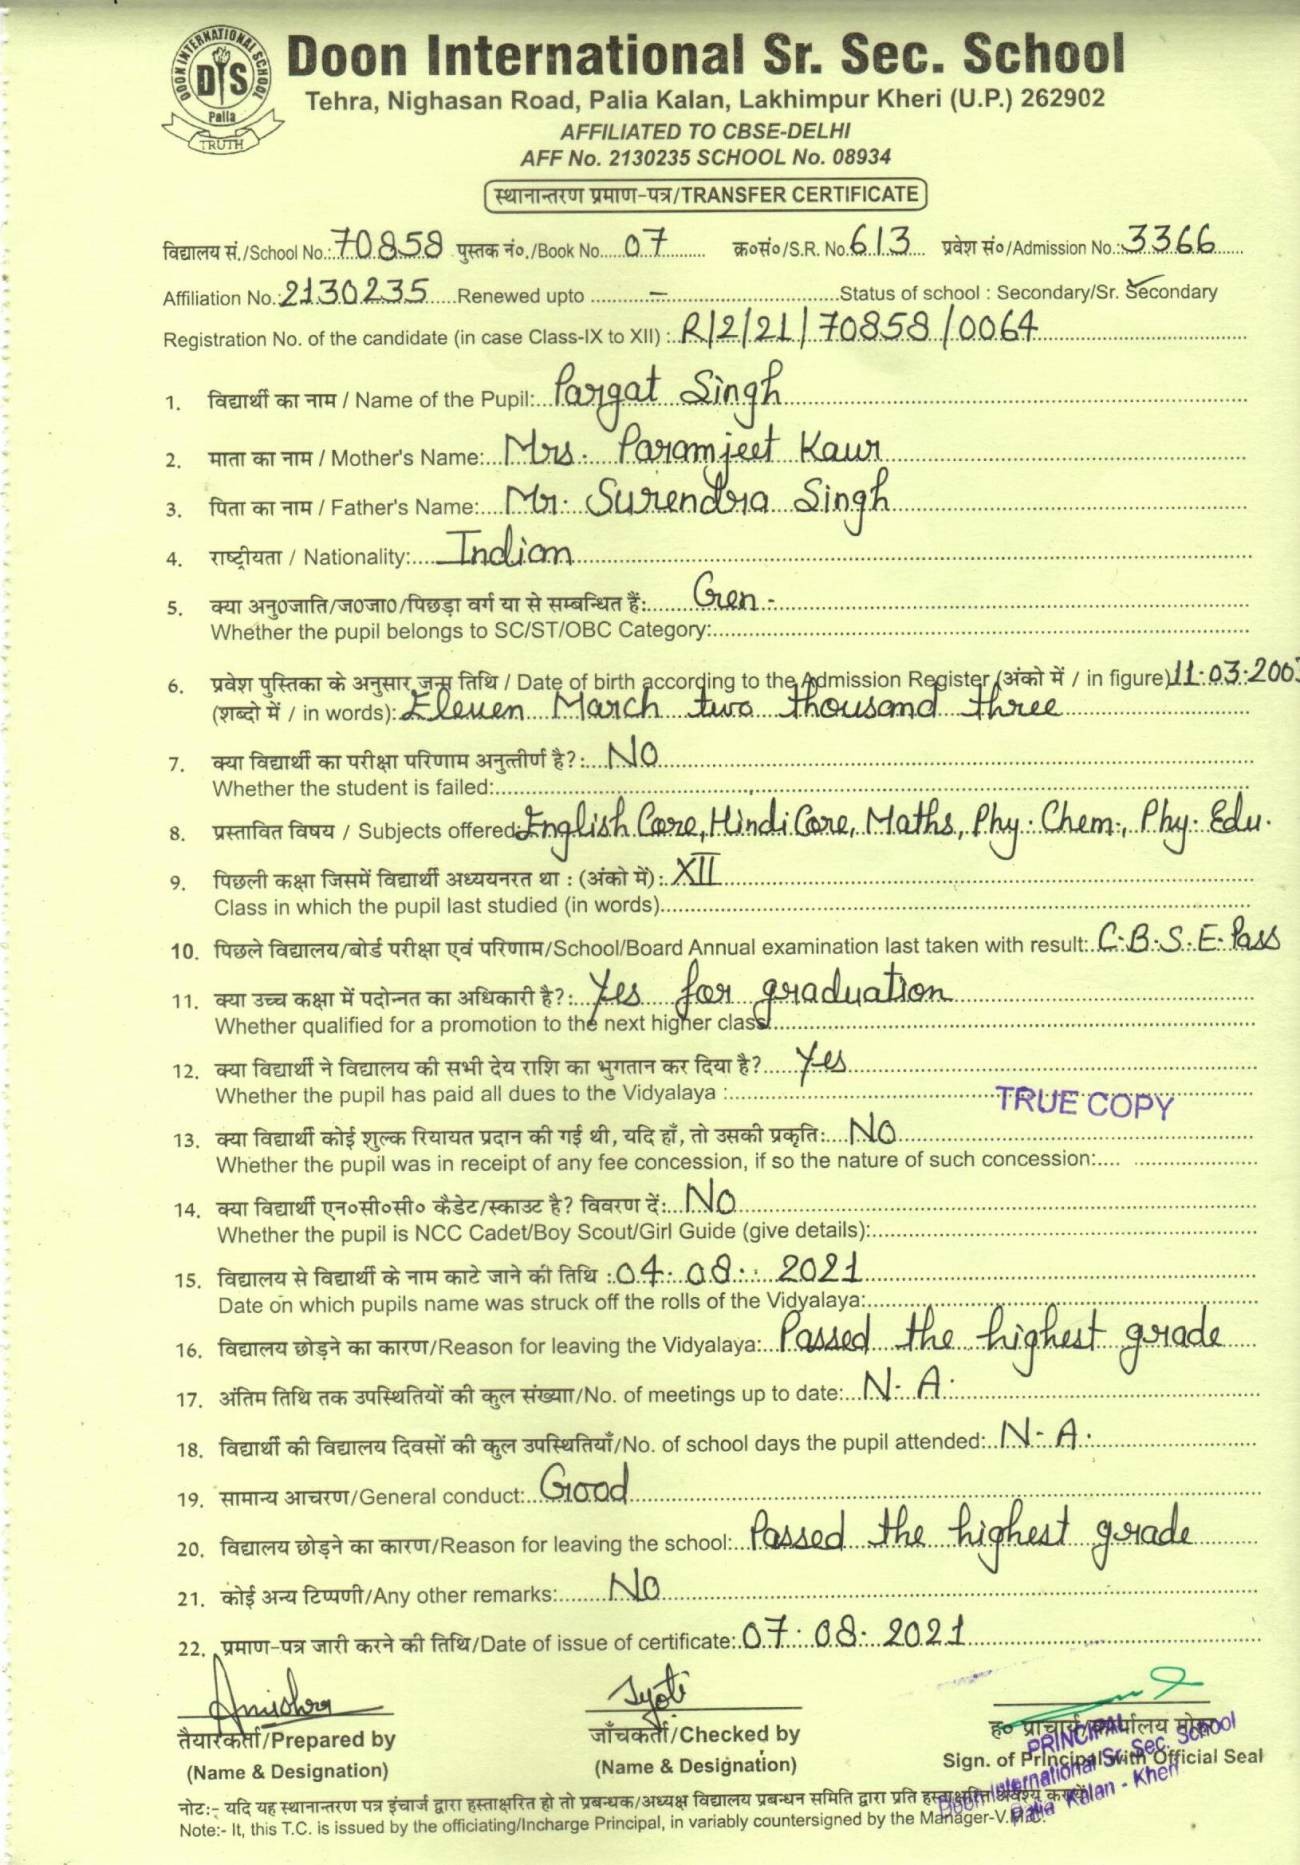 DOON INTERNATIONAL SCHOOL
DIS
Palia
TRUTH
Doon International Sr. Sec. School
Tehra, Nighasan Road, Palia Kalan, Lakhimpur Kheri (U.P.) 262902
AFFILIATED TO CBSE-DELHI
AFF No. 2130235 SCHOOL No. 08934
स्थानान्तरण प्रमाण-पत्र/TRANSFER CERTIFICATE
विद्यालय सं./School No.: 70858 पुस्तक नं०./Book No. 07 क्र०सं०/S.R. No. 613 प्रवेश सं०/Admission No.: 3366
Affiliation No.: 2130235 Renewed upto - Status of school : Secondary/Sr. Secondary
Registration No. of the candidate (in case Class-IX to XII) : R/2/21/70858/0064
1. विद्यार्थी का नाम / Name of the Pupil: Pargat Singh
2. माता का नाम / Mother's Name: Mrs. Paramjeet Kaur
3. पिता का नाम / Father's Name: Mr. Surendra Singh
4. राष्ट्रीयता / Nationality: Indian
5. क्या अनु०जाति/ज०जा०/पिछड़ा वर्ग या से सम्बन्धित हैं: Gen -
Whether the pupil belongs to SC/ST/OBC Category:
6. प्रवेश पुस्तिका के अनुसार जन्म तिथि / Date of birth according to the Admission Register (अंको में / in figure) 11.03.2003
(शब्दो में / in words): Eleven March two thousand three
7. क्या विद्यार्थी का परीक्षा परिणाम अनुत्तीर्ण है?: No
Whether the student is failed:
8. प्रस्तावित विषय / Subjects offered: English Core, Hindi Core, Maths, Phy. Chem., Phy. Edu.
9. पिछली कक्षा जिसमें विद्यार्थी अध्ययनरत था : (अंको में): XII
Class in which the pupil last studied (in words)
10. पिछले विद्यालय/बोर्ड परीक्षा एवं परिणाम/School/Board Annual examination last taken with result: C.B.S.E. Pass
11. क्या उच्च कक्षा में पदोन्नत का अधिकारी है?: Yes for graduation
Whether qualified for a promotion to the next higher class
12. क्या विद्यार्थी ने विद्यालय की सभी देय राशि का भुगतान कर दिया है? Yes
Whether the pupil has paid all dues to the Vidyalaya :
TRUE COPY
13. क्या विद्यार्थी कोई शुल्क रियायत प्रदान की गई थी, यदि हाँ, तो उसकी प्रकृति: No
Whether the pupil was in receipt of any fee concession, if so the nature of such concession:
14. क्या विद्यार्थी एन०सी०सी० कैडेट/स्काउट है? विवरण दें: No
Whether the pupil is NCC Cadet/Boy Scout/Girl Guide (give details):
15. विद्यालय से विद्यार्थी के नाम काटे जाने की तिथि : 04.08.2021
Date on which pupils name was struck off the rolls of the Vidyalaya:
16. विद्यालय छोड़ने का कारण/Reason for leaving the Vidyalaya: Passed the highest grade
17. अंतिम तिथि तक उपस्थितियों की कुल संख्याा/No. of meetings up to date: N.A.
18. विद्यार्थी की विद्यालय दिवसों की कुल उपस्थितियाँ/No. of school days the pupil attended: N.A.
19. सामान्य आचरण/General conduct: Good
20. विद्यालय छोड़ने का कारण/Reason for leaving the school: Passed the highest grade
21. कोई अन्य टिप्पणी/Any other remarks: No
22. प्रमाण-पत्र जारी करने की तिथि/Date of issue of certificate: 07.08.2021
Jyoti
तैयारकर्ता/Prepared by जाँचकर्ता/Checked by ह० प्राचार्य/कार्यालय मोहर
(Name & Designation) (Name & Designation) Sign. of Principal with Official Seal
PRINCIPAL
Doon International Sr. Sec. School
Palia Kalan - Kheri
नोट:- यदि यह स्थानान्तरण पत्र इंचार्ज द्वारा हस्ताक्षरित हो तो प्रबन्धक/अध्यक्ष विद्यालय प्रबन्धन समिति द्वारा प्रति हस्ताक्षरित अवश्य करायें
Note:- It, this T.C. is issued by the officiating/Incharge Principal, in variably countersigned by the Manager-V.M.C.